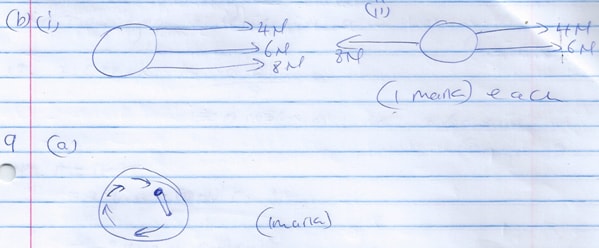 (b) (i) 4N (ii) 4N
6N 6N
8N 8N
(1 mark) each
9 (a)
(1mark)